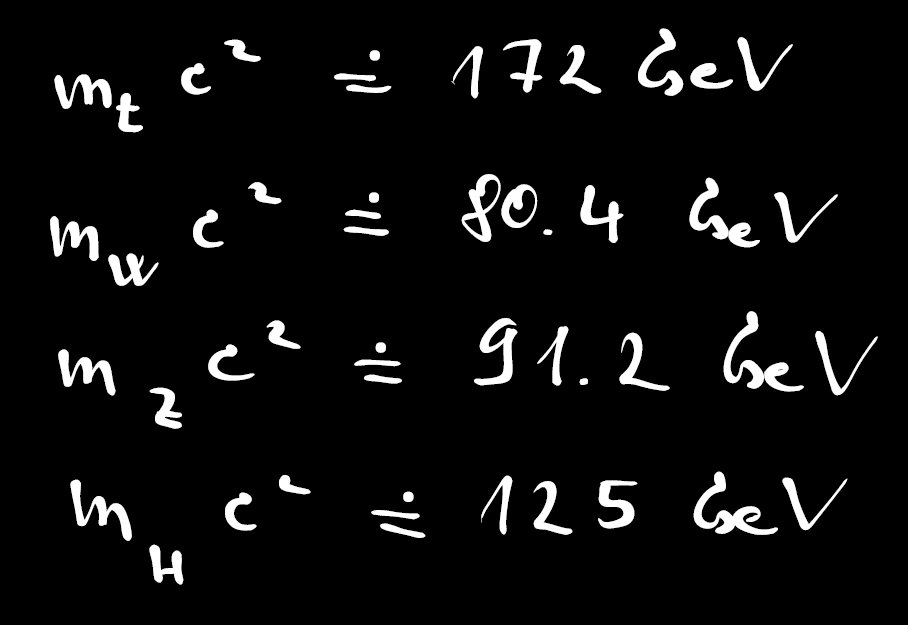 m_t c² ≐ 172 GeV
m_W c² ≐ 80.4 GeV
m_Z c² ≐ 91.2 GeV
m_H c² ≐ 125 GeV